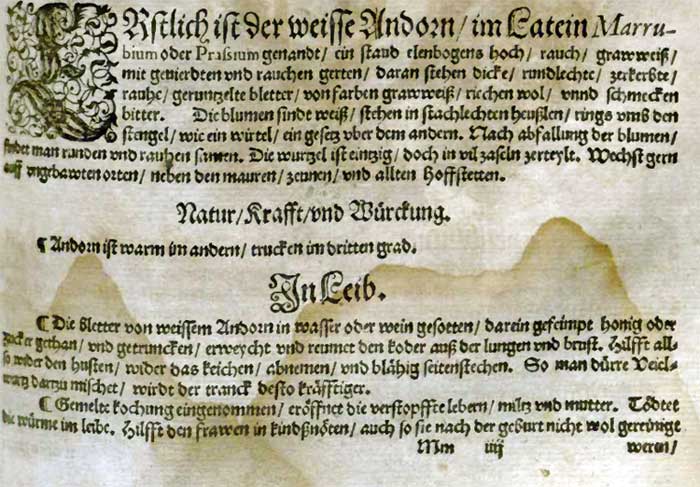 ERstlich ist der weisse Andorn / im Latein Marru-
bium oder Prassium genandt / ein staud elenbogens hoch / rauch / grawweiß /
mit gevierdten vnd rauchen gerten / daran stehen dicke / rundlechte / zerkerbte /
rauhe / geruntzelte bletter / von farben grawweiß / riechen wol / vnnd schmecken
bitter. Die blumen sindt weiß / stehen in stachlechten heußlen / rings vmb den
stengel / wie ein wirtel / ein gesetz vber dem andern. Nach abfallung der blumen /
findet man runden vnd rauhen samen. Die wurzel ist eintzig / doch in vil zaseln zerteylt. Wechst gern
auff vngebawten orten / neben den mauren / zeunen / vnd allten Hoffstetten.
Natur / Krafft / vnd Würckung.
¶ Andorn ist warm im andern / trucken im dritten grad.
In Leib.
¶ Die bletter von weissem Andorn in wasser oder wein gesotten / darein gefeimpt honig oder
zucker gethan / vnd getruncken / erweycht vnd reumet den koder auß der lungen vnd brust. Hilfft all-
so wider den husten / wider das keichen / abnemen / vnd blähig seitenstechen. So man dürre Veiel-
wurtz darzu mischet / wirdt der tranck desto kräfftiger.
¶ Gemelte kochung eingenommen / eröffnet die verstopffte lebern / miltz vnd mutter. Tödtet
die würme im leibe. Hilfft den frawen in kindßnöten / auch so sie nach der geburt nicht wol gereinige
Mm iiij weren /